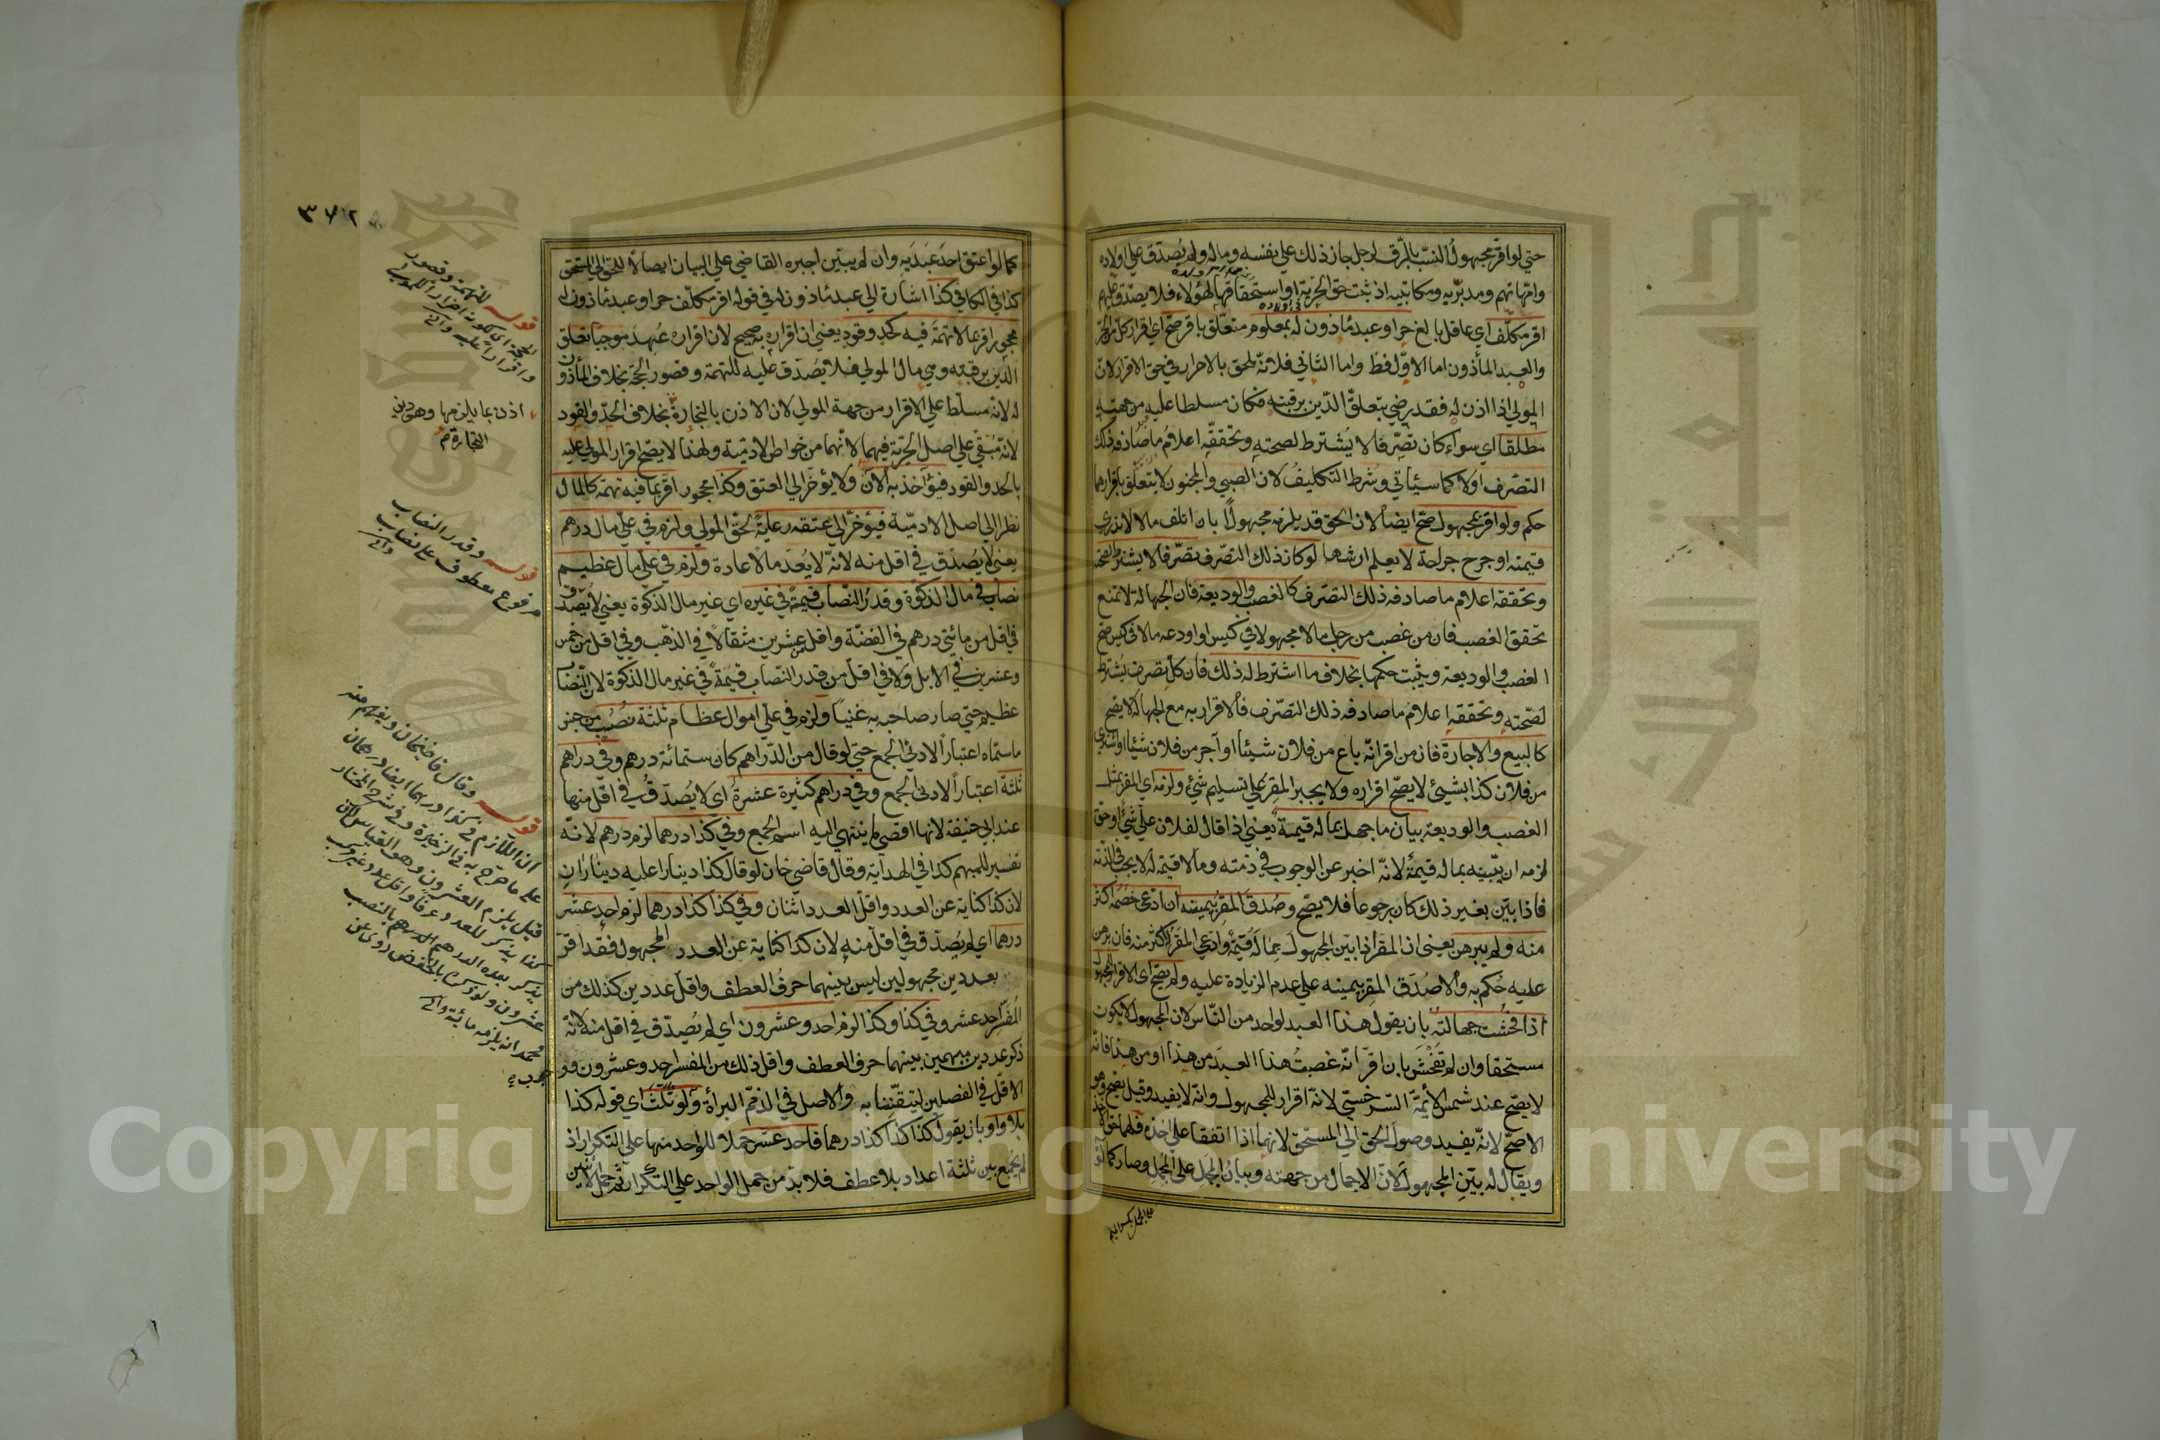 حتى لو اقر مجهول النسب بالرق لرجل جاز ذلك على نفسه وماله ولم يصدق على اولاده
وامهاتهم ومدبريه ومكاتبيه اذ ثبت حق الحرية او استحقاقها لهؤلاء فلا يصدق عليهم
اقر مكلف اي عاقل بالغ حر او عبد مأذون له بمعلوم متعلق باقر صح اي اقرار كل من الحر
والعبد المأذون اما الاول فظ واما الثاني فلانه ملحق بالاحرار في حق الاقرار لان
المولي اذا اذن له فقد رضي بتعلق الدين برقبته فكان مسلطا عليه من جهته
مطلقا اي سواء كان تصرفا لا يشترط لصحته وتحققه اعلام ما صادفه ذلك
التصرف اولا كما سيأتي وشرط التكليف لان الصبي والمجنون لا يتعلق باقرارهما
حكم ولو اقر بمجهول صح ايضا لان الحق قد يلزمه مجهولا بان اتلف مالا لا يدري
قيمته او جرح جراحة لا يعلم ارشها لو كان ذلك التصرف تصرفا لا يشترط لصحته
وتحققه اعلام ما صادفه ذلك التصرف كالغصب والوديعة فان الجهالة لا تمنع
تحقق الغصب فان من غصب من رجل مالا مجهولا في كيس او اودعه مالا في كيس صح
الغصب والوديعة ويثبت حكمها بخلاف ما اشترط له ذلك فان كل تصرف يشترط
لصحته وتحققه اعلام ما صادفه ذلك التصرف فالاقرار به مع الجهالة لا يصح
كالبيع والاجارة فان من اقر انه باع من فلان شيئا او آجر من فلان شيئا او اشترى
من فلان كذا بشيئ لا يصح اقراره ولا يجبر المقر على تسليم شيئ ولزمه اي المقر بمثل
الغصب والوديعة بيان ما جهل بما له قيمة يعني اذا قال لفلان علي شئ او حق
لزمه ان يبينه بما له قيمة لانه اخبر عن الوجوب في ذمته وما لا قيمة له لا يجب في الذمة
فاذا بين بغير ذلك كان رجوعا فلا يصح وصدق المقر بيمينه ان ادعى خصمه اكثر
منه ولم يبرهن يعني ان المقر اذا بين المجهول بما له قيمة وادعى المقر له اكثر منه فان برهن
عليه حكم به والا صدق المقر بيمينه على عدم الزيادة عليه ولم يصح اي الاقرار بالمجهول
اذا فحشت جهالته بان يقول هذا العبد لواحد من الناس لان المجهول لا يكون
مستحقا وان لم تفحش بان اقر انه غصب هذا العبد من هذا او من هذا فانه
لا يصح عند شمس الأئمة السرخسي لانه اقرار للمجهول وانه لا يفيد وقيل يصح وهو
الاصح لانه يفيد وصول الحق الي المستحق لانهما اذا اتفقا على اخذه فلهما حق الاخذ
ويقال له بين المجهول لان الاجمال من جهته وبيان المجمل على المجمل وصار كما لو
٣٦٢
كما لو اعتق احد عبديه وان لم يبين اجبره القاضي على البيان ايصالا للحق الي المستحق
كذا في الكافي كذا اشارة الي عبد مأذون له في قوله اقر مكلف حر او عبد مأذون له
محجور اقر بما لا تهمة فيه كحد وقود يعني ان اقراره به صحيح لان اقراره عهد موجبا تعلق
الدين برقبته وهي مال المولي فلا يصدق عليه للتهمة وقصور الحجة بخلاف المأذون
له لانه مسلط على الاقرار من جهة المولي لان الاذن بالتجارة بخلاف الحد والقود
لانه مبقى على اصل الحرية فيهما لانهما من خواص الادمية ولهذا لا يصح اقرار المولي عليه
بالحد والقود فيؤاخذ به الآن ولا يؤخر الي العتق وكذا محجور اقر بما فيه تهمة كالمال
نظرا الي اصل الادمية فيؤخر الي عتقه رعاية لحق المولي ولزم في علي مال درهم
يعني لا يصدق في اقل منه لانه لا يعد مالا عادة ولزم في علي مال عظيم
نصاب في مال الزكوة وقدر النصاب قيمة في غيره اي غير مال الزكوة يعني لا يصدق
في اقل من مائتي درهم في الفضة واقل من عشرين مثقالا في الذهب وفي اقل من خمس
وعشرين في الابل ولا في اقل من قدر النصاب قيمة في غير مال الزكوة لان النصاب
عظيم حتى صار صاحبه به غنيا ولزم في علي اموال عظام ثلثة نصب من جنس
ما سماه اعتبارا لادنى الجمع حتى لو قال من الدراهم كان ستمائة درهم وفي دراهم
ثلثة اعتبارا لادنى الجمع وفي دراهم كثيرة عشرة اي لا يصدق في اقل منها
عند ابي حنيفة لانها اقصى ما ينتهي اليه اسم الجمع وفي كذا درهما لزم درهم لانه
تفسير للمبهم كذا في الهداية وقال قاضي خان لو قال كذا دينارا عليه ديناران
لان كذا كناية عن العدد واقل العدد اثنان وفي كذا كذا درهما لزم احد عشر
درهما اي لم يصدق في اقل منه لان كذا كناية عن العدد المجهول فقد اقر
بعددين مجهولين ليس بينهما حرف العطف واقل عددين كذلك من
المفسر احد عشر وفي كذا وكذا لزم احد وعشرون اي لم يصدق في اقل منه لانه
ذكر عددين مبهمين بينهما حرف العطف واقل ذلك من المفسر احد وعشرون ولزم
الاقل في الفصلين لتيقنه به والاصل في الذمم البراءة ولو ثلث اي قوله كذا
بلا واو بان يقول كذا كذا كذا درهما فاحد عشر حملا للواحد منها على التكرار اذ
لم يجمع بين ثلثة اعداد بلا عطف فلا بد من حمل الواحد على التكرار ثم حمل الاثنين
قوله للتهمة وقصور
الحجة اي لكونه اضرارا للمولى
واقرارا عليه والى
اذن بما يلزمها وهو دين
التجارة م
قوله وقدر النصاب
مرفوع معطوف على نصاب
والى
قوله وقال قاضيخان ويفهم منه
ان اللازم في كذا درهما ايضا درهمان
على ما صرح به في الذخيرة وفي شرح المختار
قيل يلزم العشرون وهو القياس لان
كذا يذكر للعدد عرفا واقل عدد غير مركب
يذكر بعده الدرهم بالنصب
عشرون ولو ذكر بالخفض روى عن
محمد انه يلزمه مائة والى